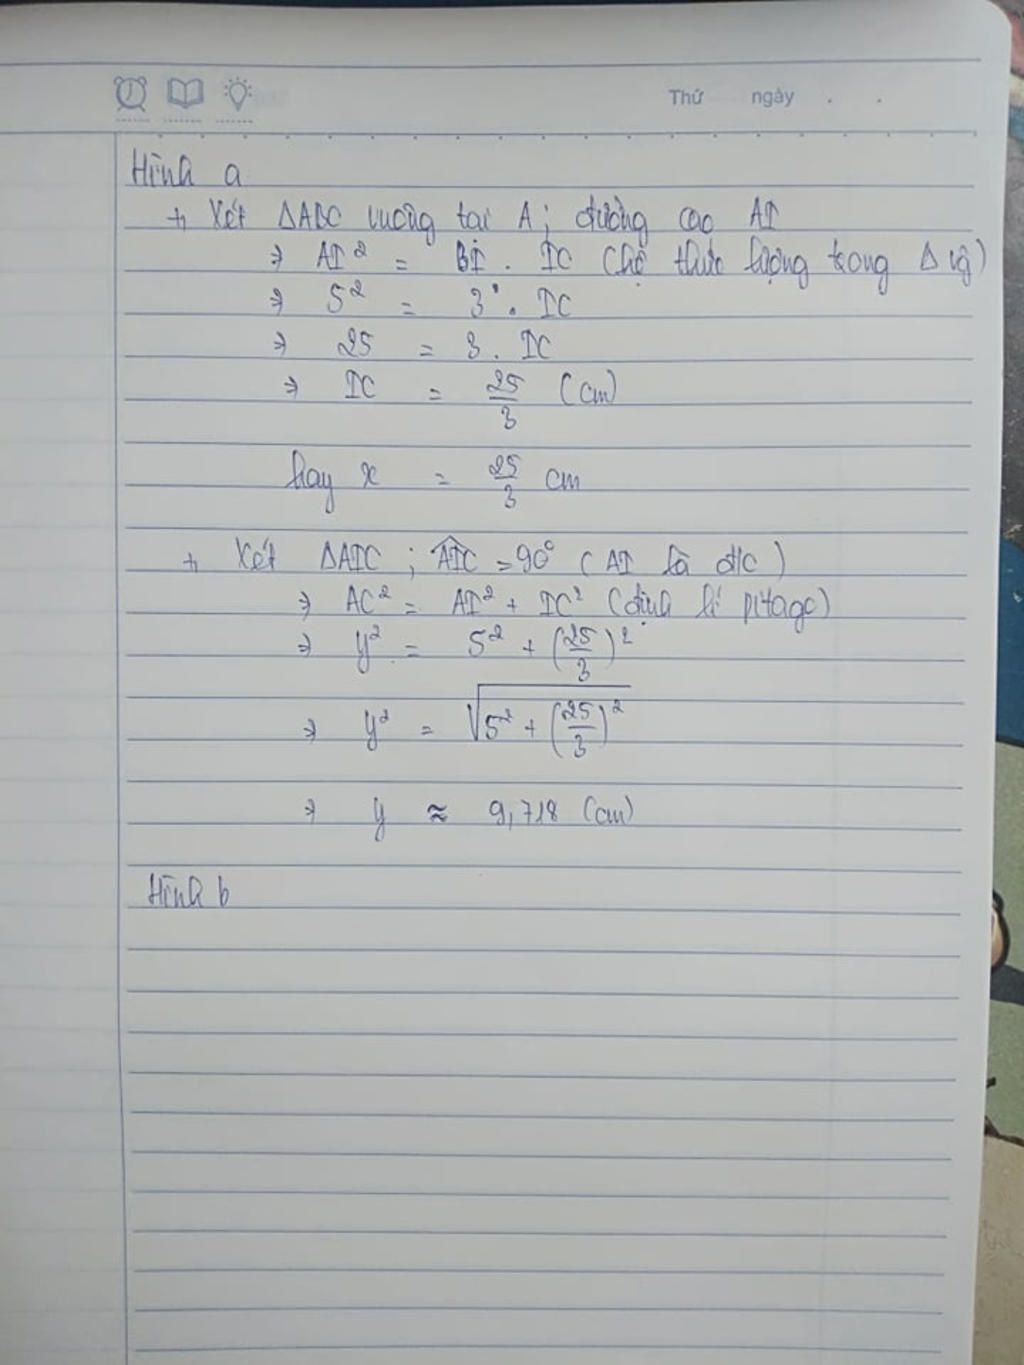 Thứ ngày . .
Hình a
+ Xét ΔABC vuông tại A; đường cao AI
⇒ AI² = BI . IC (hệ thức lượng trong Δ vg)
⇒ 5² = 3 . IC
⇒ 25 = 3 . IC
⇒ IC = 25/3 (cm)
hay x = 25/3 cm
+ Xét ΔAIC ; AIC = 90° (AI là đ/c)
⇒ AC² = AI² + IC² (định lí pitago)
⇒ y² = 5² + (25/3)²
⇒ y² = √5² + (25/3)²
⇒ y ≈ 9,718 (cm)
Hình b